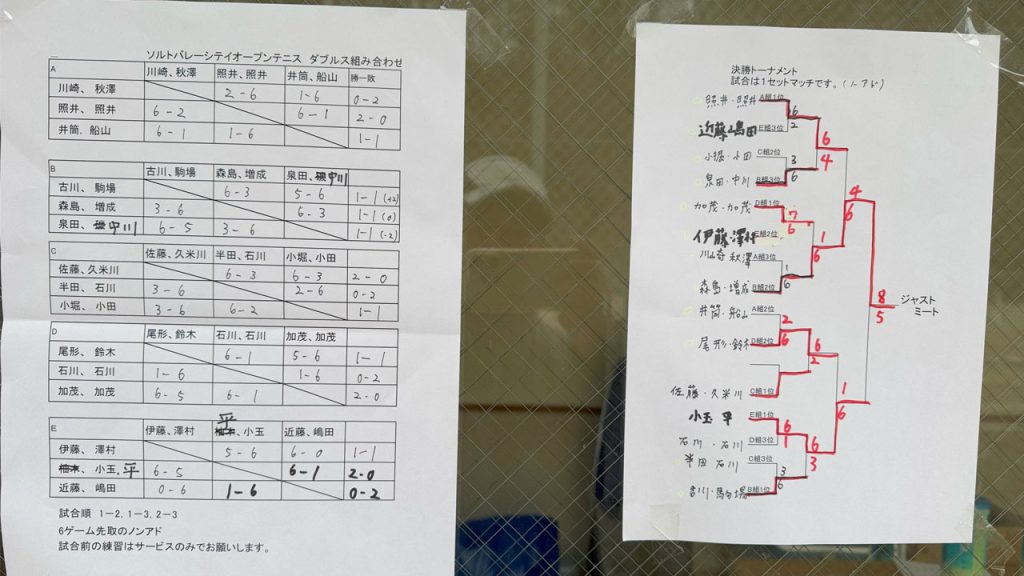 ソルトバレーシテイオープンテニス ダブルス組み合わせ
A 川崎、秋澤 照井、照井 井筒、船山 勝ー敗
川崎、秋澤 2-6 1-6 0-2
照井、照井 6-2 6-1 2-0
井筒、船山 6-1 1-6 1-1
B 古川、駒場 森島、増成 泉田、中川
古川、駒場 6-3 5-6 1-1 (+2)
森島、増成 3-6 6-3 1-1 (0)
泉田、中川 6-5 3-6 1-1 (-2)
C 佐藤、久米川 半田、石川 小堀、小田
佐藤、久米川 6-3 6-3 2-0
半田、石川 3-6 2-6 0-2
小堀、小田 3-6 6-2 1-1
D 尾形、鈴木 石川、石川 加茂、加茂
尾形、鈴木 6-1 5-6 1-1
石川、石川 1-6 1-6 0-2
加茂、加茂 6-5 6-1 2-0
平
E 伊藤、澤村 柚木、小玉 近藤、嶋田
伊藤、澤村 5-6 6-0 1-1
柚木、小玉、平 6-5 6-1 2-0
近藤、嶋田 0-6 1-6 0-2
試合順 1-2、1-3、2-3
6ゲーム先取のノンアド
試合前の練習はサービスのみでお願いします。
決勝トーナメント
試合は1セットマッチです。
照井・照井 A組1位
6
2
近藤嶋田 E組3位
6
4
小堀・小田 C組2位
3
6
泉田・中川 B組3位
4
6
加茂・加茂 D組1位
7
6
伊藤澤村 E組2位
1
6
川崎 秋澤 A組3位
1
6
森島・増成 B組2位
8
5
ジャスト
ミート
井筒・船山 A組2位
2
6
尾形・鈴木 D組2位
6
2
佐藤・久米川 C組1位
1
6
小玉 平 E組1位
6
1
石川・石川 D組3位
6
3
半田 石川 C組3位
3
6
古川・駒場 B組1位